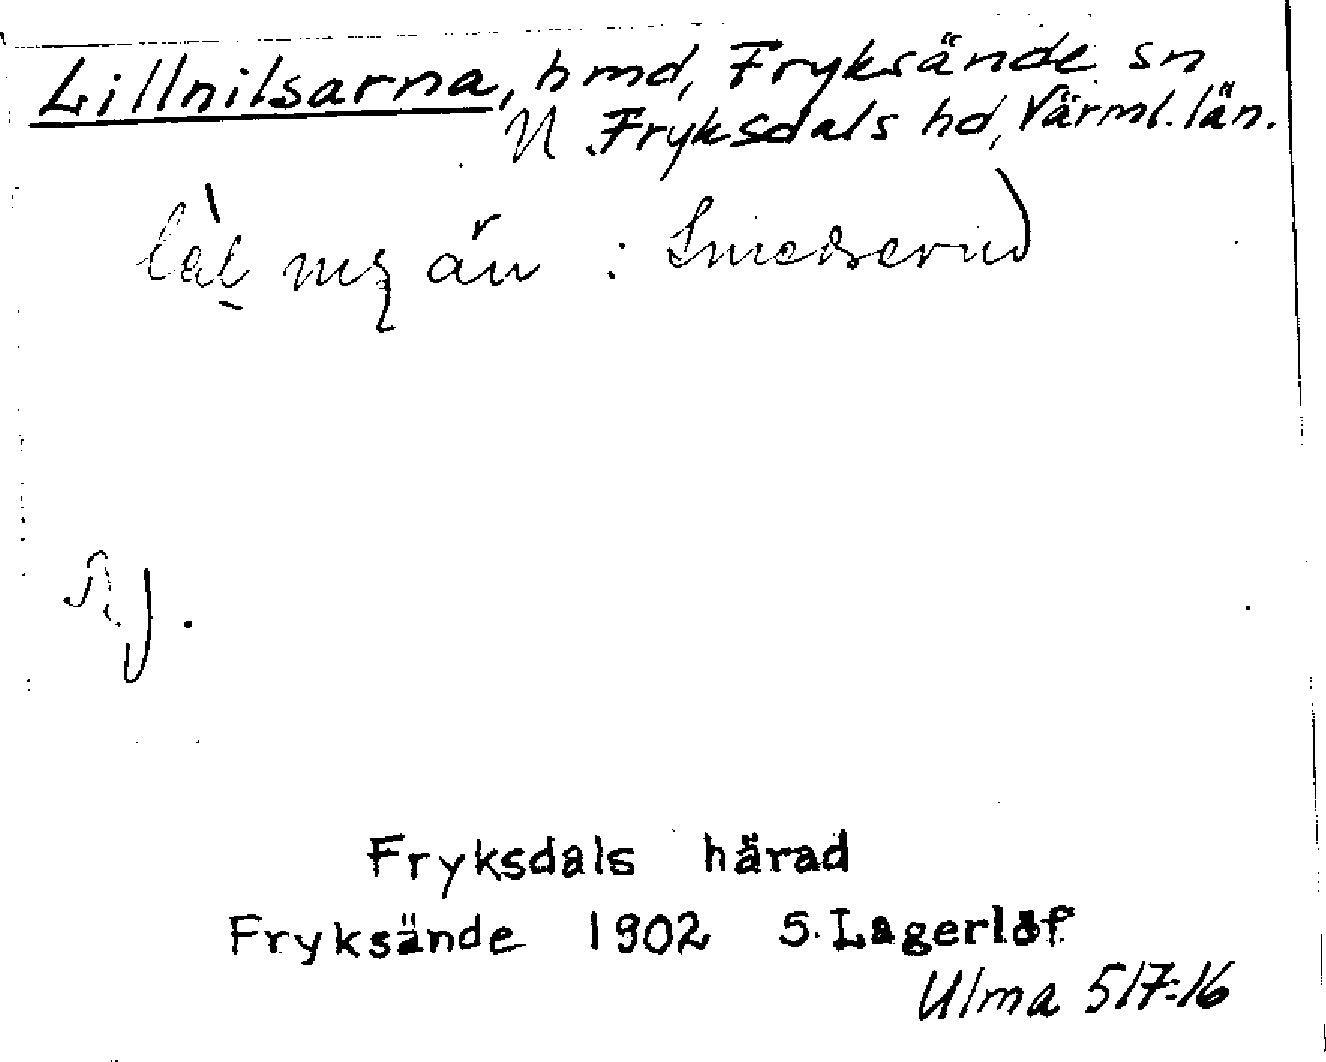 Lillnilsarna, hmd, Fryksände sn
N Fryksdals hd, Värml. län.
: Smedserud
Fryksdals härad
Fryksände 1902 S. Lagerlöf
Ulma 517:16